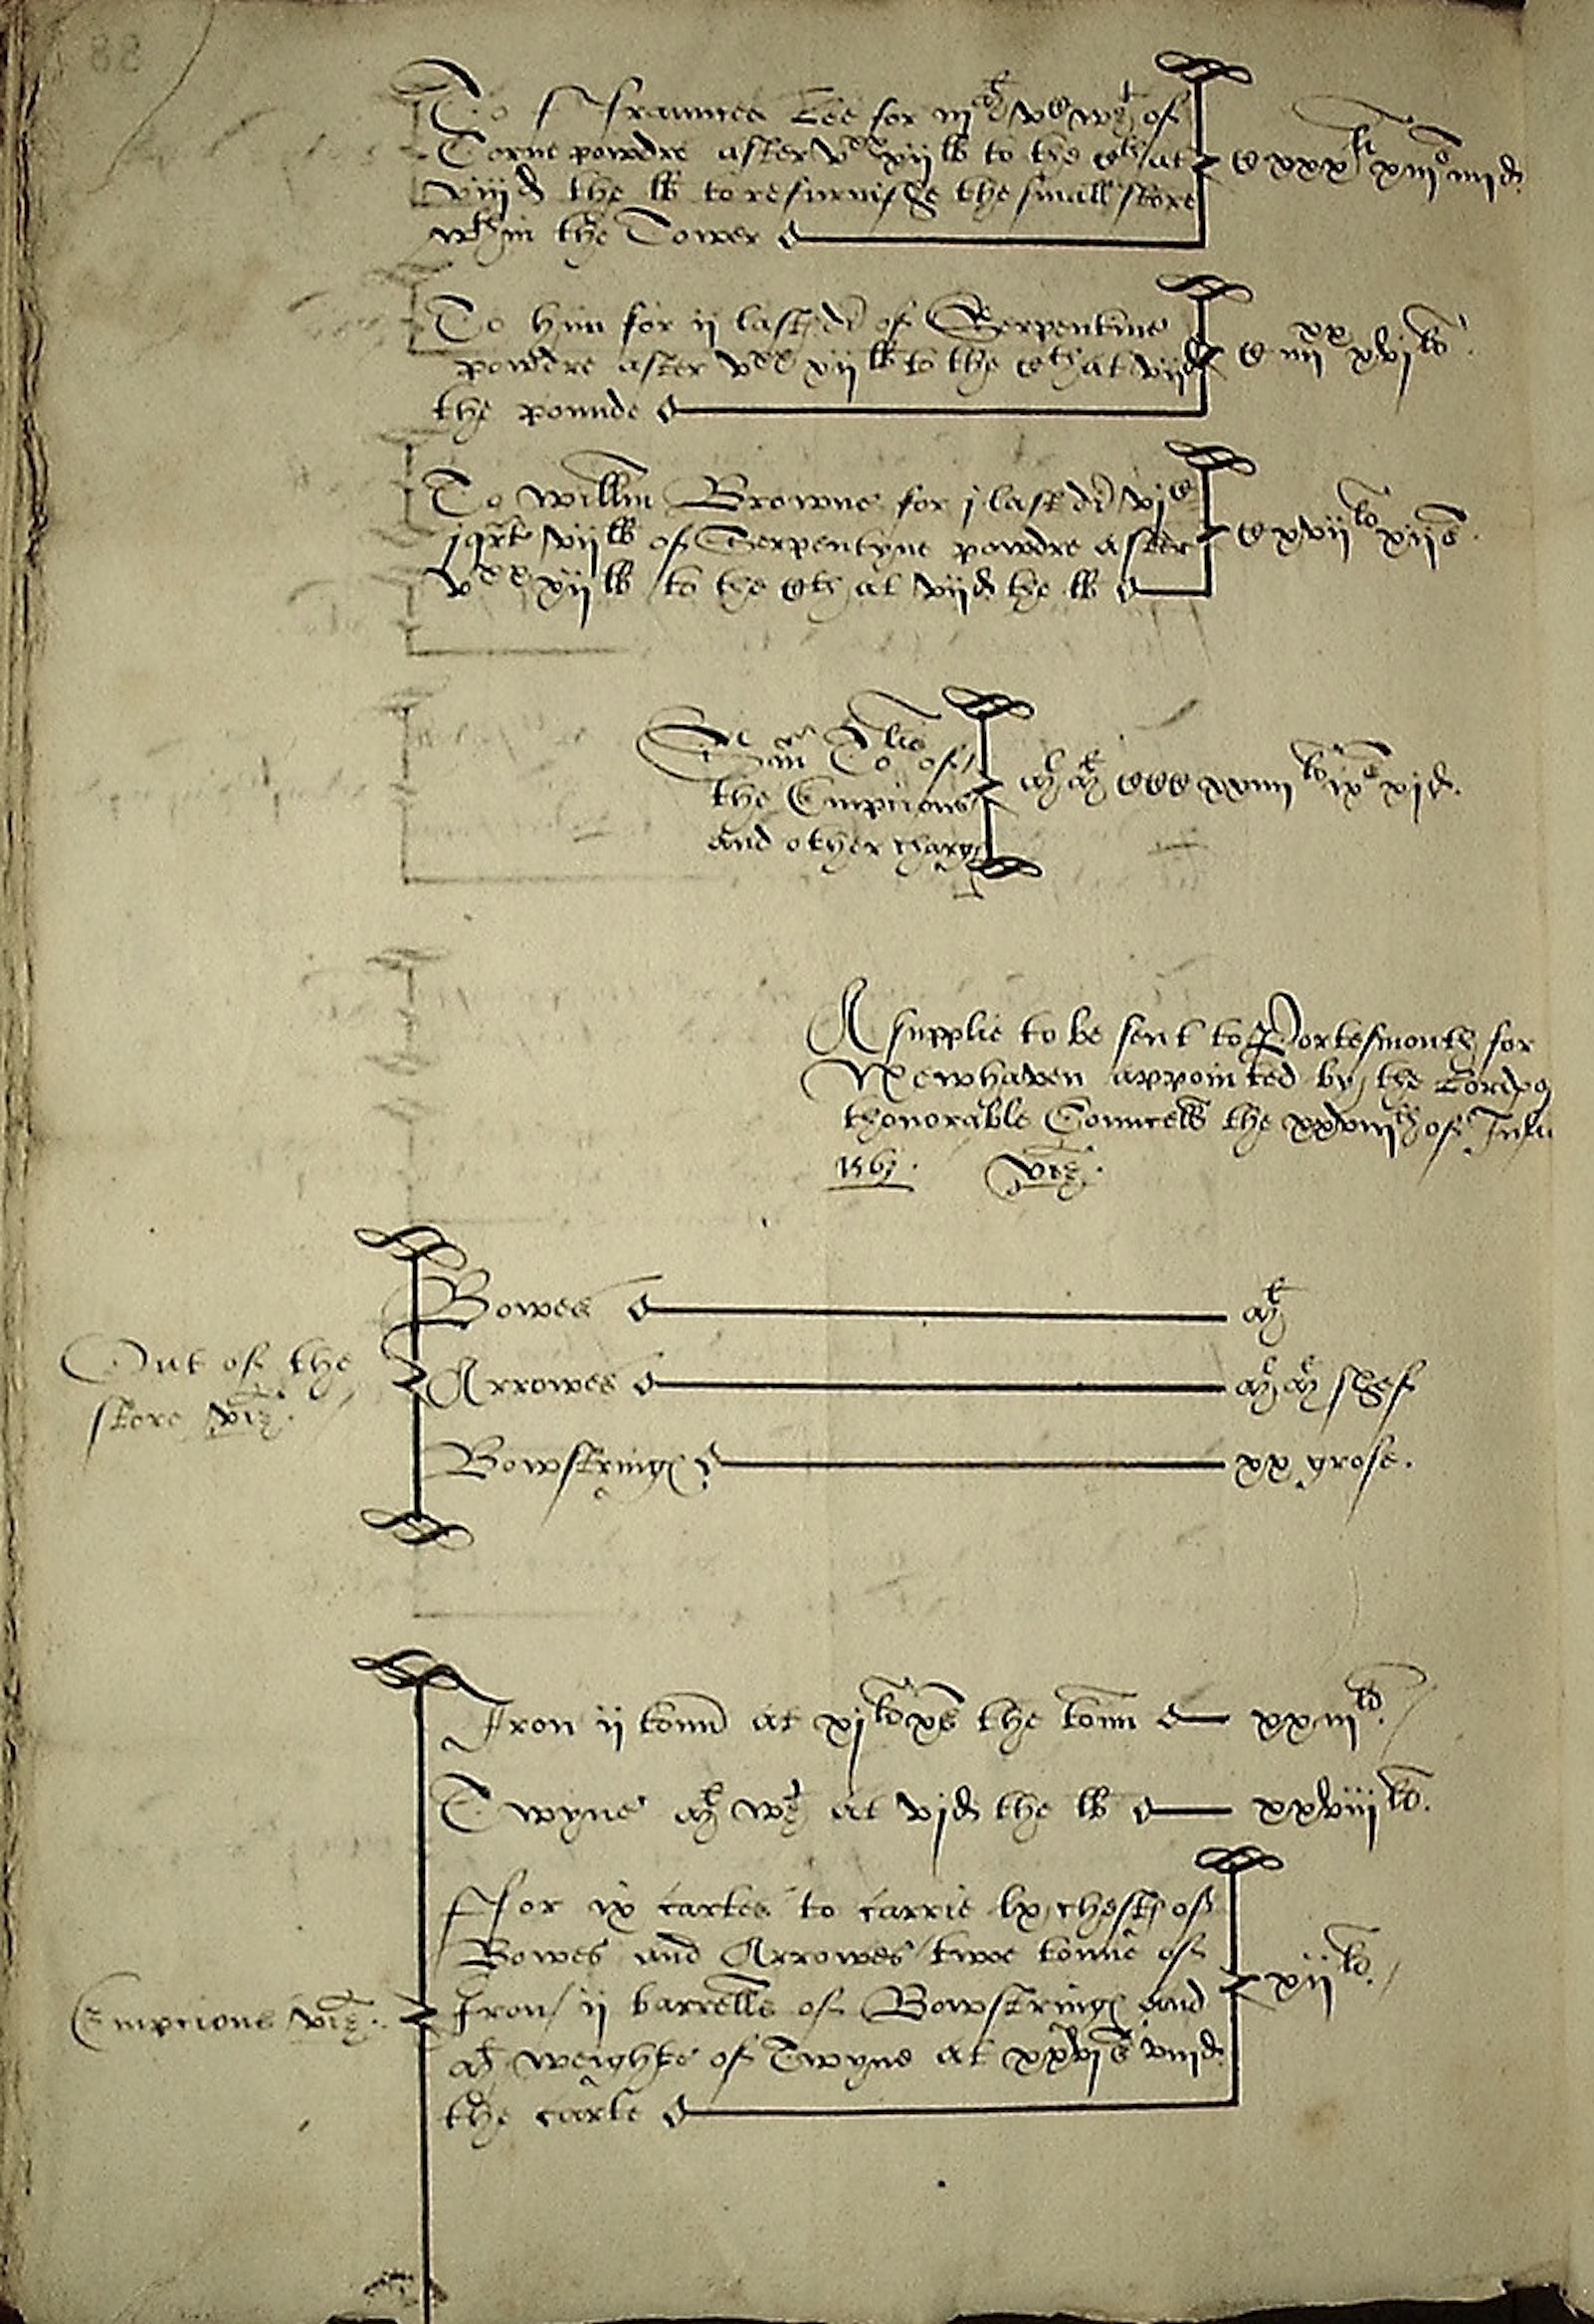 To ffraunces Lee for iij ml vc wt of
Corne powdre after vxx xij lb to the cth at
viij d the lb to refurnishe the small store
wthin the Tower
c xxx li xiij s iiij d
To him for ij last di of Serpentine
powdre after vxx xij lb to the cth at vij d
the pounde
c iiijxx xvj li
To Willm Browne for j last di vj c
j qrt vij lb of Serpentyne powdre after
vxx xij lb to the cth at vij d the lb
c xvij li xij s
Sm Tolis of
the Empcions
and other charg
ml ml ccc xxiiij li ix s xj d
A supplie to be sent to Portesmouth for
Newhaven appointed by the Lord
thonorable Councell the xxviijth of July
1563 viz
Out of the
store viz
Bowes ml
Arrowes ml ml shef
Bowstring xx grose
Empcions viz
Iron ij tonn at xj li x s the tonn xxiij li
Twyne ml wt at vj d the lb xxviij li
ffor ix cartes to carrie lx chest of
Bowes and Arrowes twoe tonne of
Iron ij barrells of Bowstring and
ml weighte of Twyne at xxvj s viij d
the carte
xij li